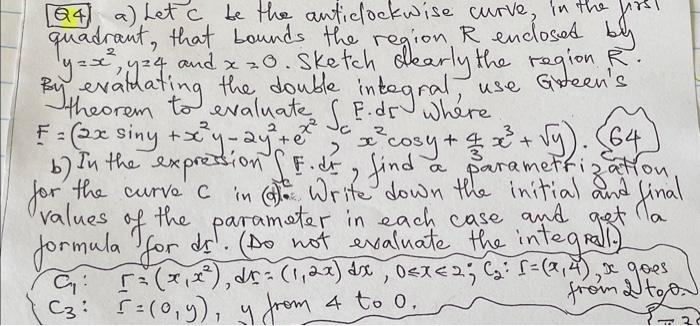 Q4 a) Let C be the anticlockwise curve, in the first
quadrant, that bounds the region R enclosed by
y=x², y=4 and x=0. Sketch clearly the region R.
By evaluating the double integral, use Green's
theorem to evaluate ∫_C F.dr where
F = (2x siny + x²y - 2y² + e^{x²}, x²cosy + 4/3 x³ + √y). (64)
b) In the expression ∫_C F.dr, find a parametrization
for the curve C in (a). Write down the initial and final
values of the parameter in each case and get a
formula for dr. (Do not evaluate the integral.)
C₁: r=(x,x²), dr=(1,2x)dx, 0≤x≤2; C₂: r=(x,4), x goes
from 2 to 0.
C₃: r=(0,y), y from 4 to 0.